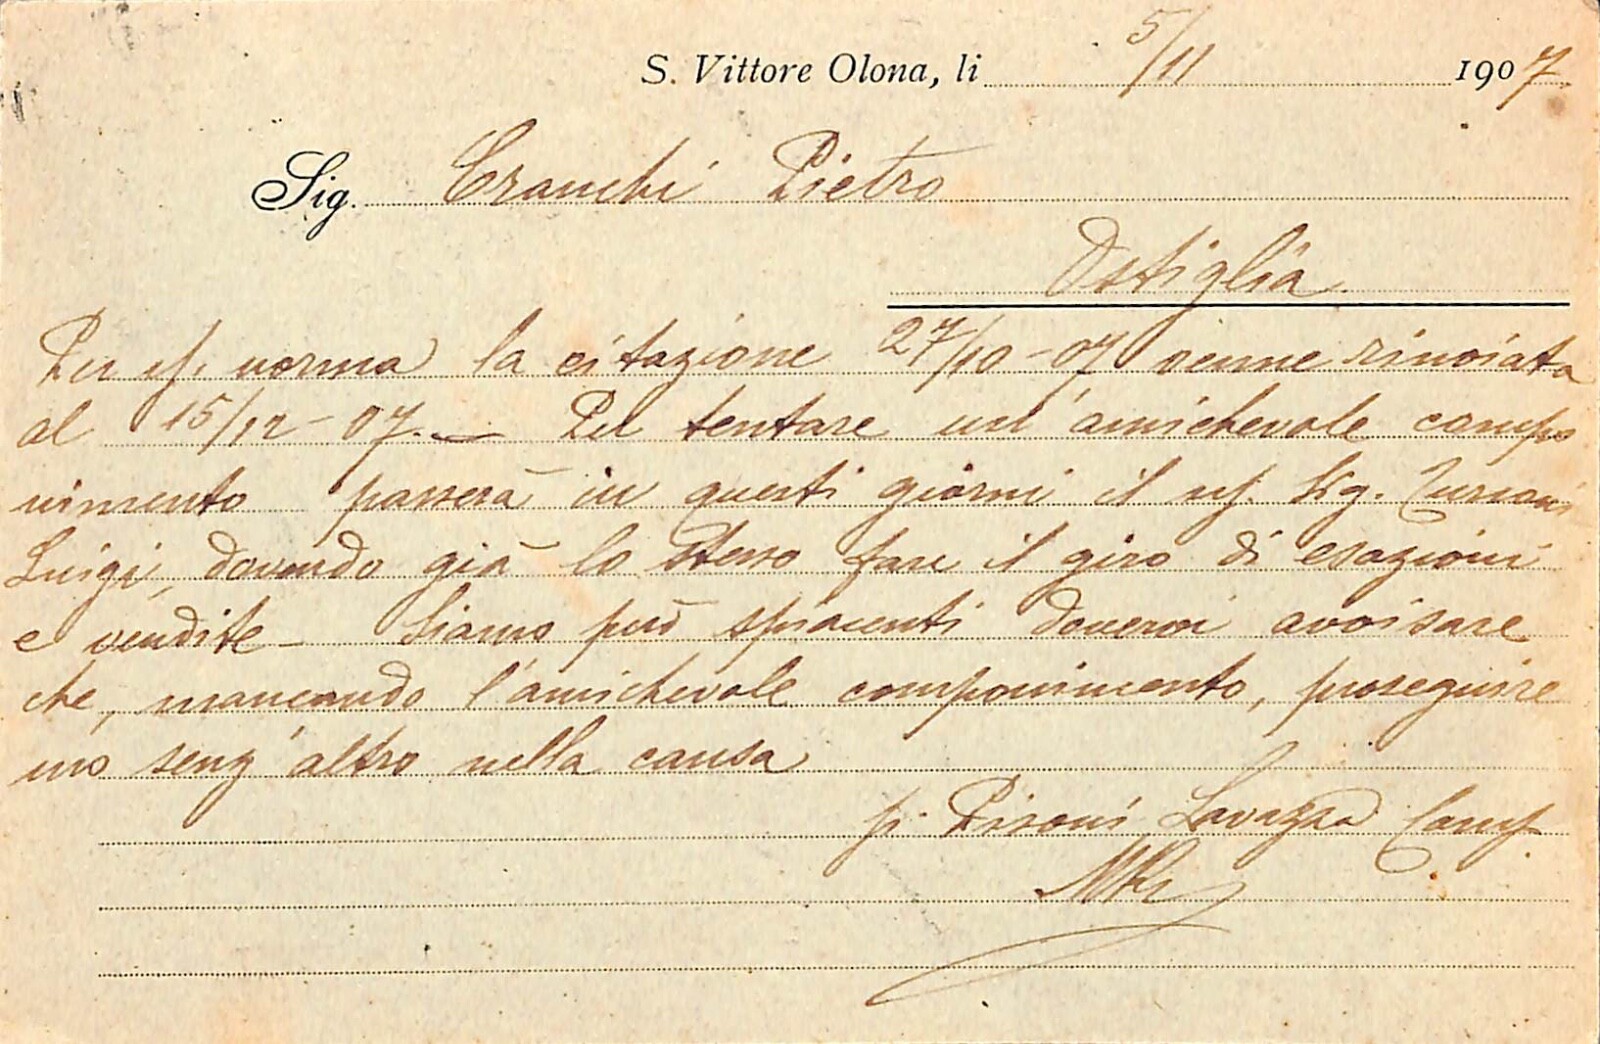 S. Vittore Olona, li 5/11 1907
Sig. Cranchi Pietro
Ostiglia
Per vs. norma la citazione 27/10-07 venne rinviata
al 15/12-07. — Per tentare un'amichevole compo
nimento passerà in questi giorni il ns. Sig.
Luigi, dovendo già lo stesso fare il giro di esazioni
e vendite — Siamo però spiacenti dovervi avvisare
che, mancando l'amichevole componimento, proseguire
mo senz'altro nella causa
p. Pisoni, Lavazza Comp.